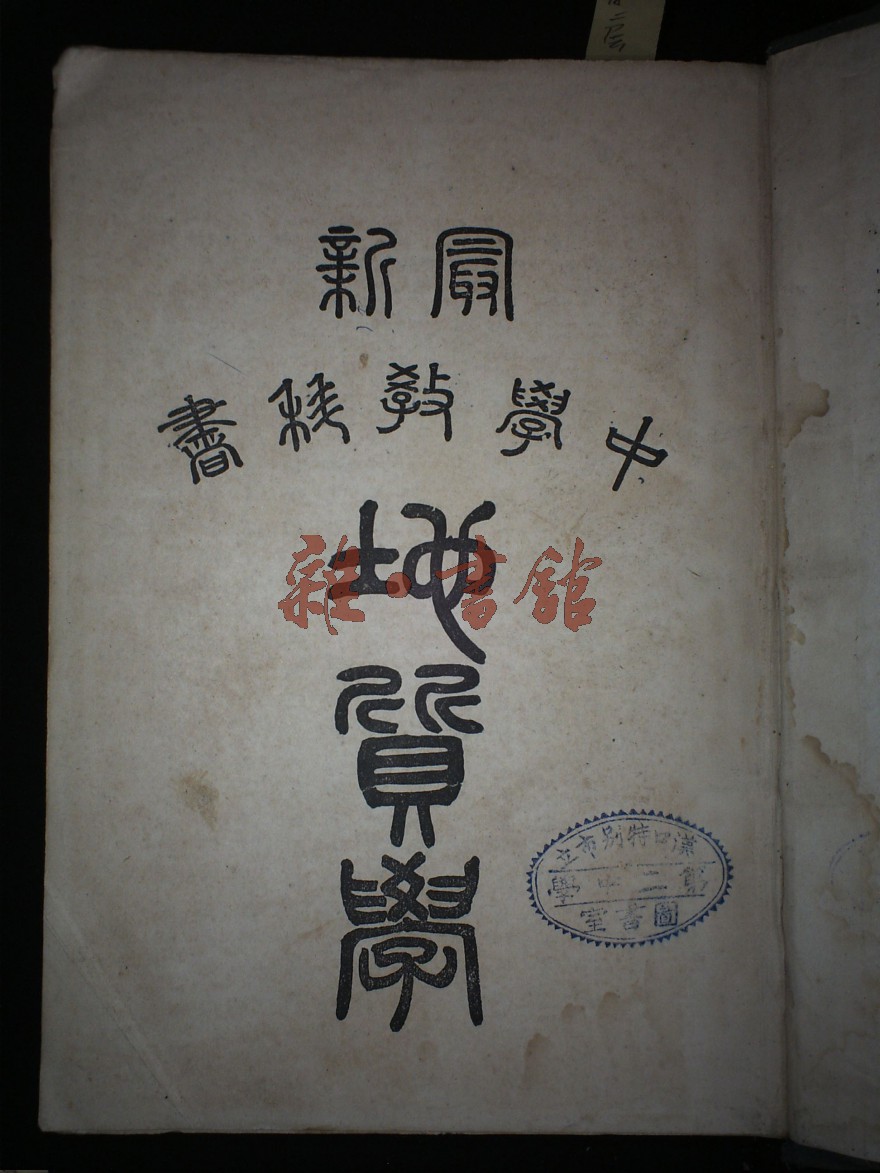 最新
中學教科書
地質學
雜·書館
漢口特別市立
第二中學
圖書室